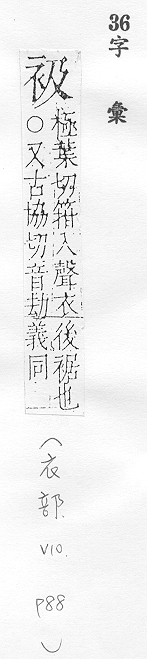 36
字彙
衱
極葉切箝入聲衣後裾也
○又古協切音劫義同
(衣部. V10. P88)